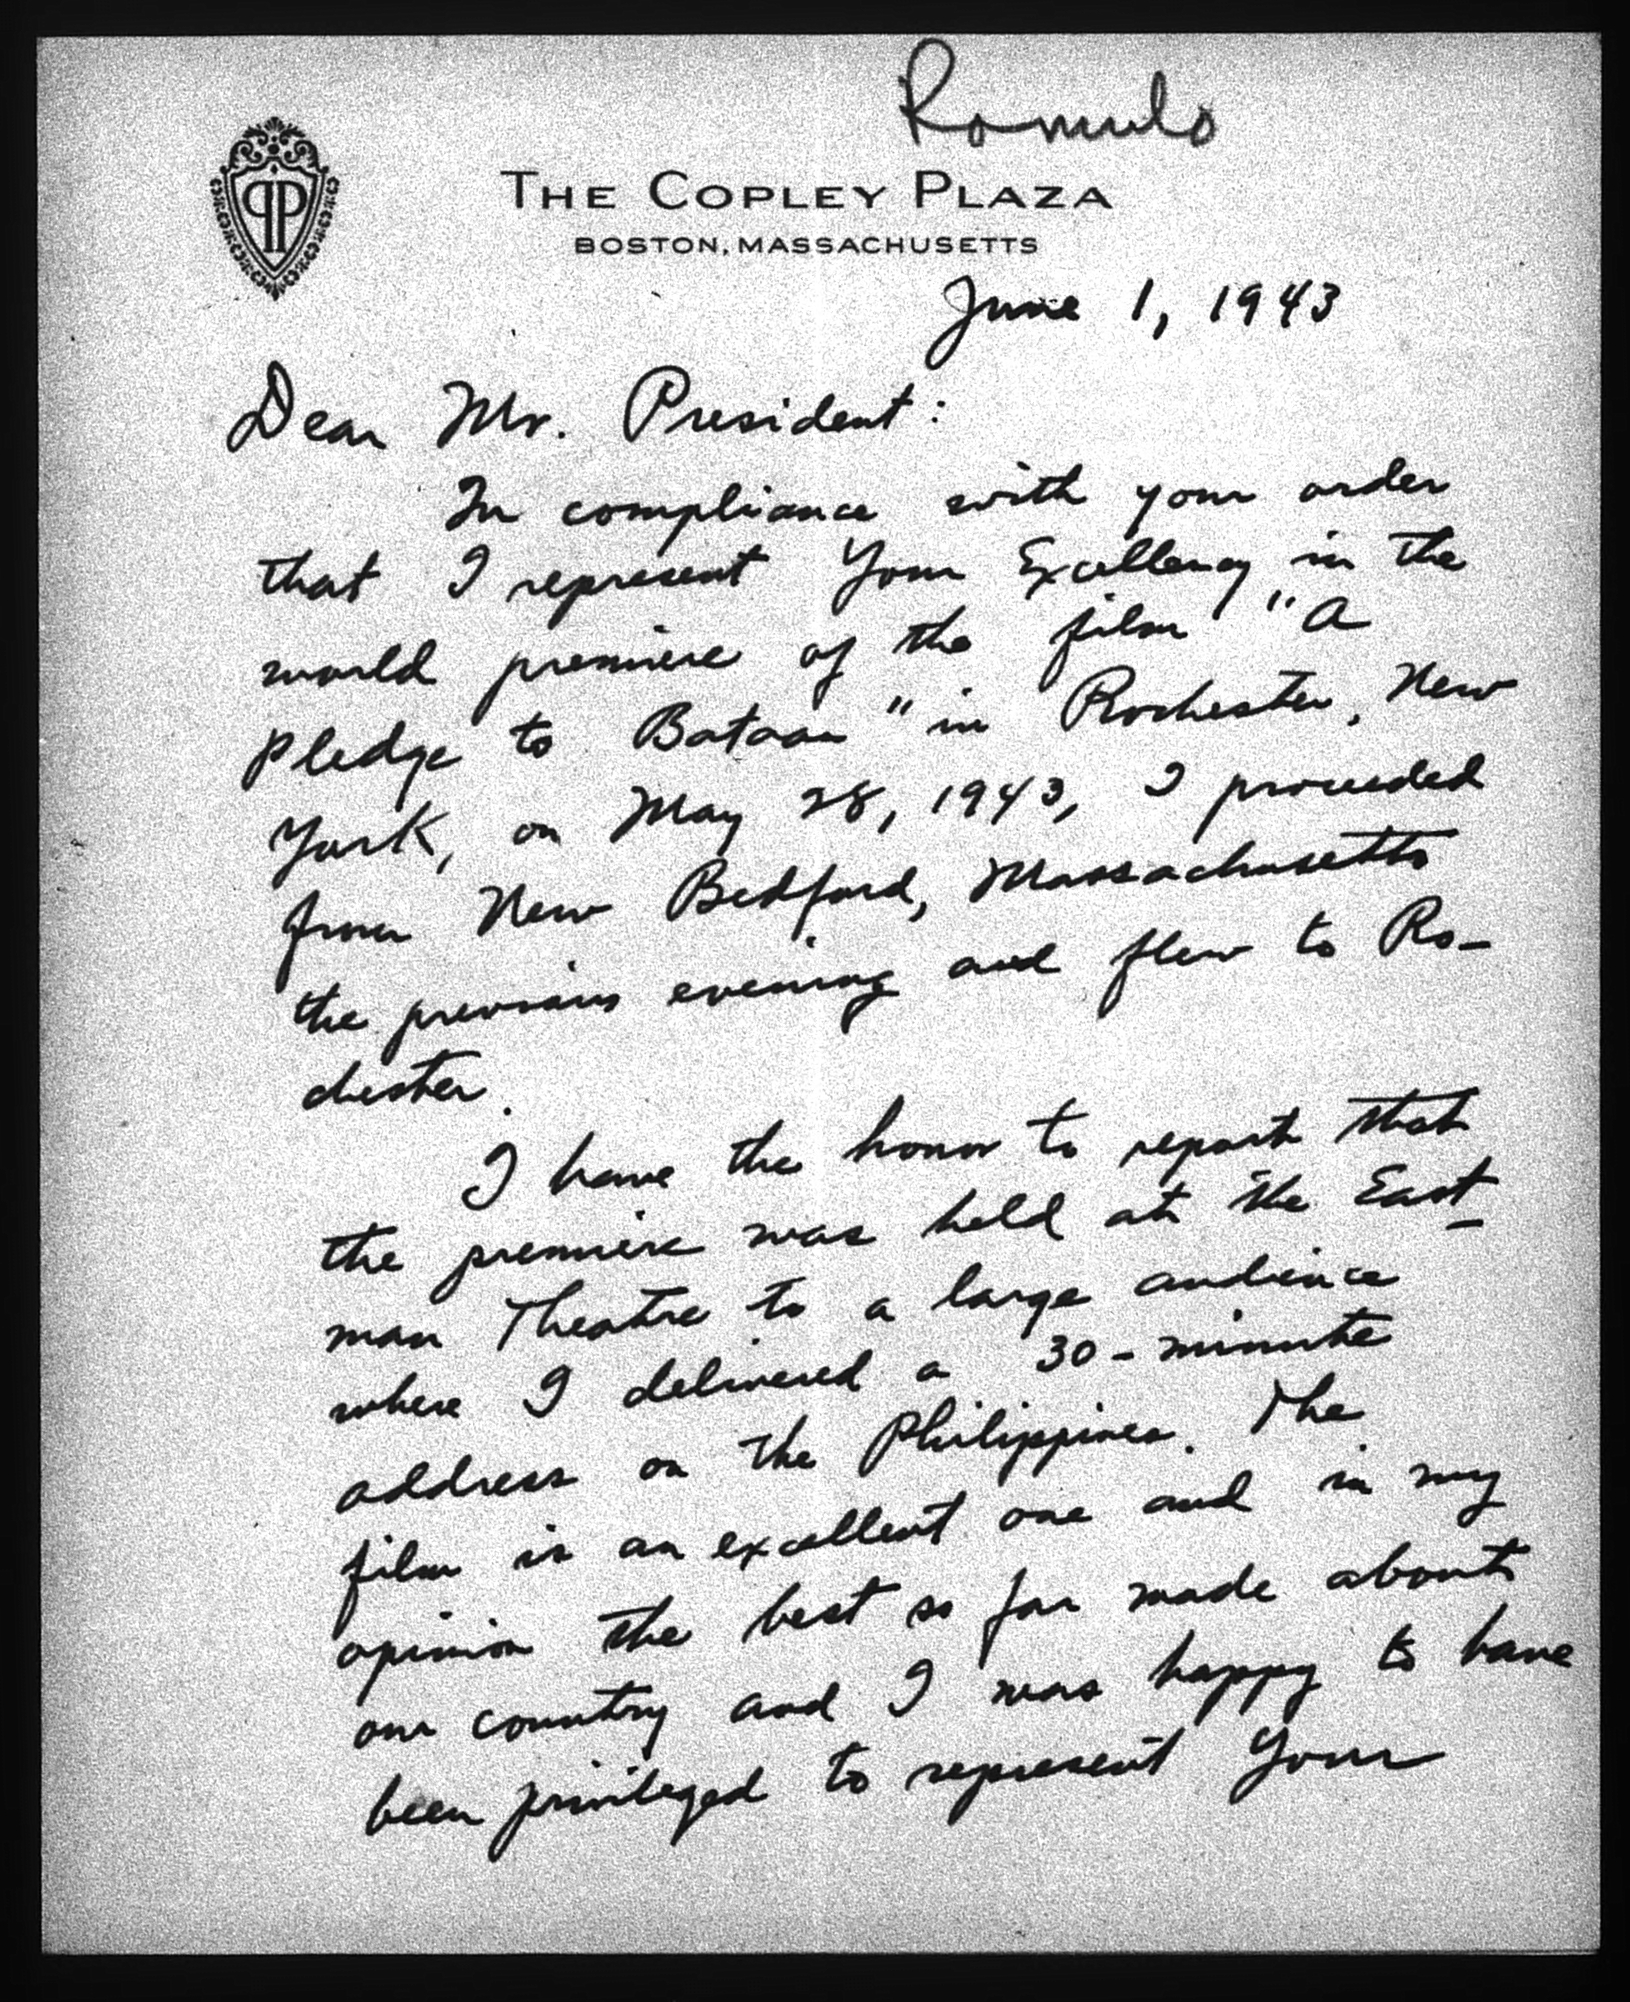 Romulo
THE COPLEY PLAZA
BOSTON, MASSACHUSETTS
June 1, 1943
Dear Mr. President:
In compliance with your order
that I represent Your Excellency in the
world premiere of the film "A
Pledge to Bataan" in Rochester, New
York, on May 28, 1943, I proceeded
from New Bedford, Massachusetts
the previous evening and flew to Ro-
chester.
I have the honor to report that
the premiere was held at the East-
man Theatre to a large audience
where I delivered a 30-minute
address on the Philippines. The
film is an excellent one and in my
opinion the best so far made about
our country and I was happy to have
been privileged to represent Your